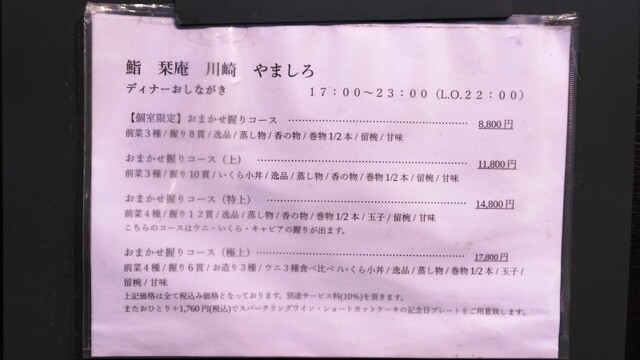 鮨 栞庵 川崎 やましろ
ディナーおしながき 17:00～23:00（L.O.22：00）
【個室限定】おまかせ握りコース 8,800円
前菜３種 / 握り８貫 / 逸品 / 蒸し物 / 香の物 / 巻物 1/2 本 / 留椀 / 甘味
おまかせ握りコース（上） 11,800円
前菜３種 / 握り 10 貫 / いくら小丼 / 逸品 / 蒸し物 / 香の物 / 巻物 1/2 本 / 留椀 / 甘味
おまかせ握りコース（特上） 14,800円
前菜４種 / 握り１２貫 / 逸品 / 蒸し物 / 香の物 / 巻物 1/2本 / 玉子 / 留椀 / 甘味
こちらのコースはウニ・いくら・キャビアの握りが出ます。
おまかせ握りコース（極上） 17,800円
前菜４種 / 握り６貫 / お造り３種 / ウニ３種食べ比べ / いくら小丼 / 逸品 / 蒸し物 / 巻物 1/2本 / 玉子 /
留椀 / 甘味
上記価格は全て税込み価格となっております。別途サービス料(10%)を頂きます。
またおひとり＋1,760円(税込)でスパークリングワイン・ショートカットケーキの記念日プレートをご用意致します。